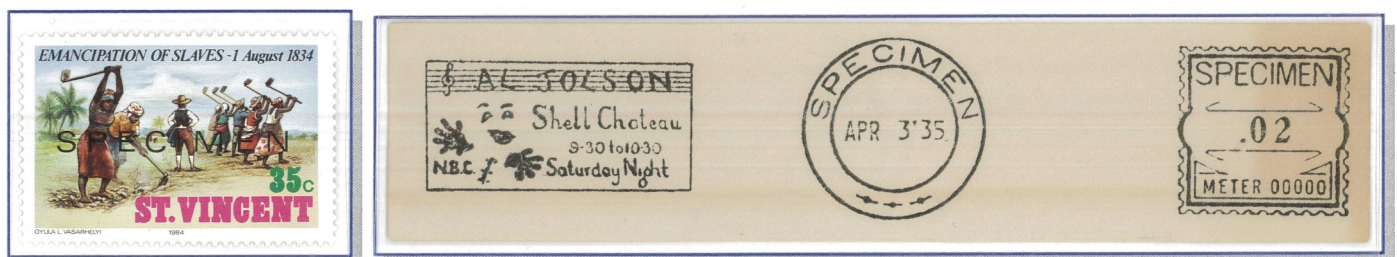 EMANCIPATION OF SLAVES - 1 August 1834
SPECIMEN
35c
ST. VINCENT
GYULA L. VASARHELYI 1984
AL JOLSON
Shell Chateau
9-30 to 10-30
N.B.C. Saturday Night
SPECIMEN
APR 3'35
SPECIMEN
.02
METER 00000